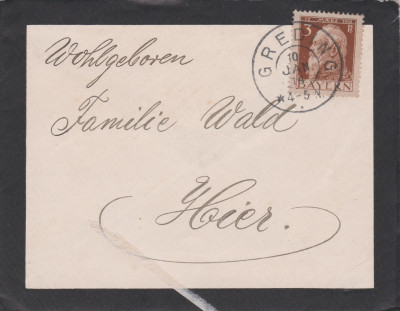 3 P
GREDING
10
JAN
* 4-5 N.
BAYERN
Wohlgeboren
Familie Wald
Hier.